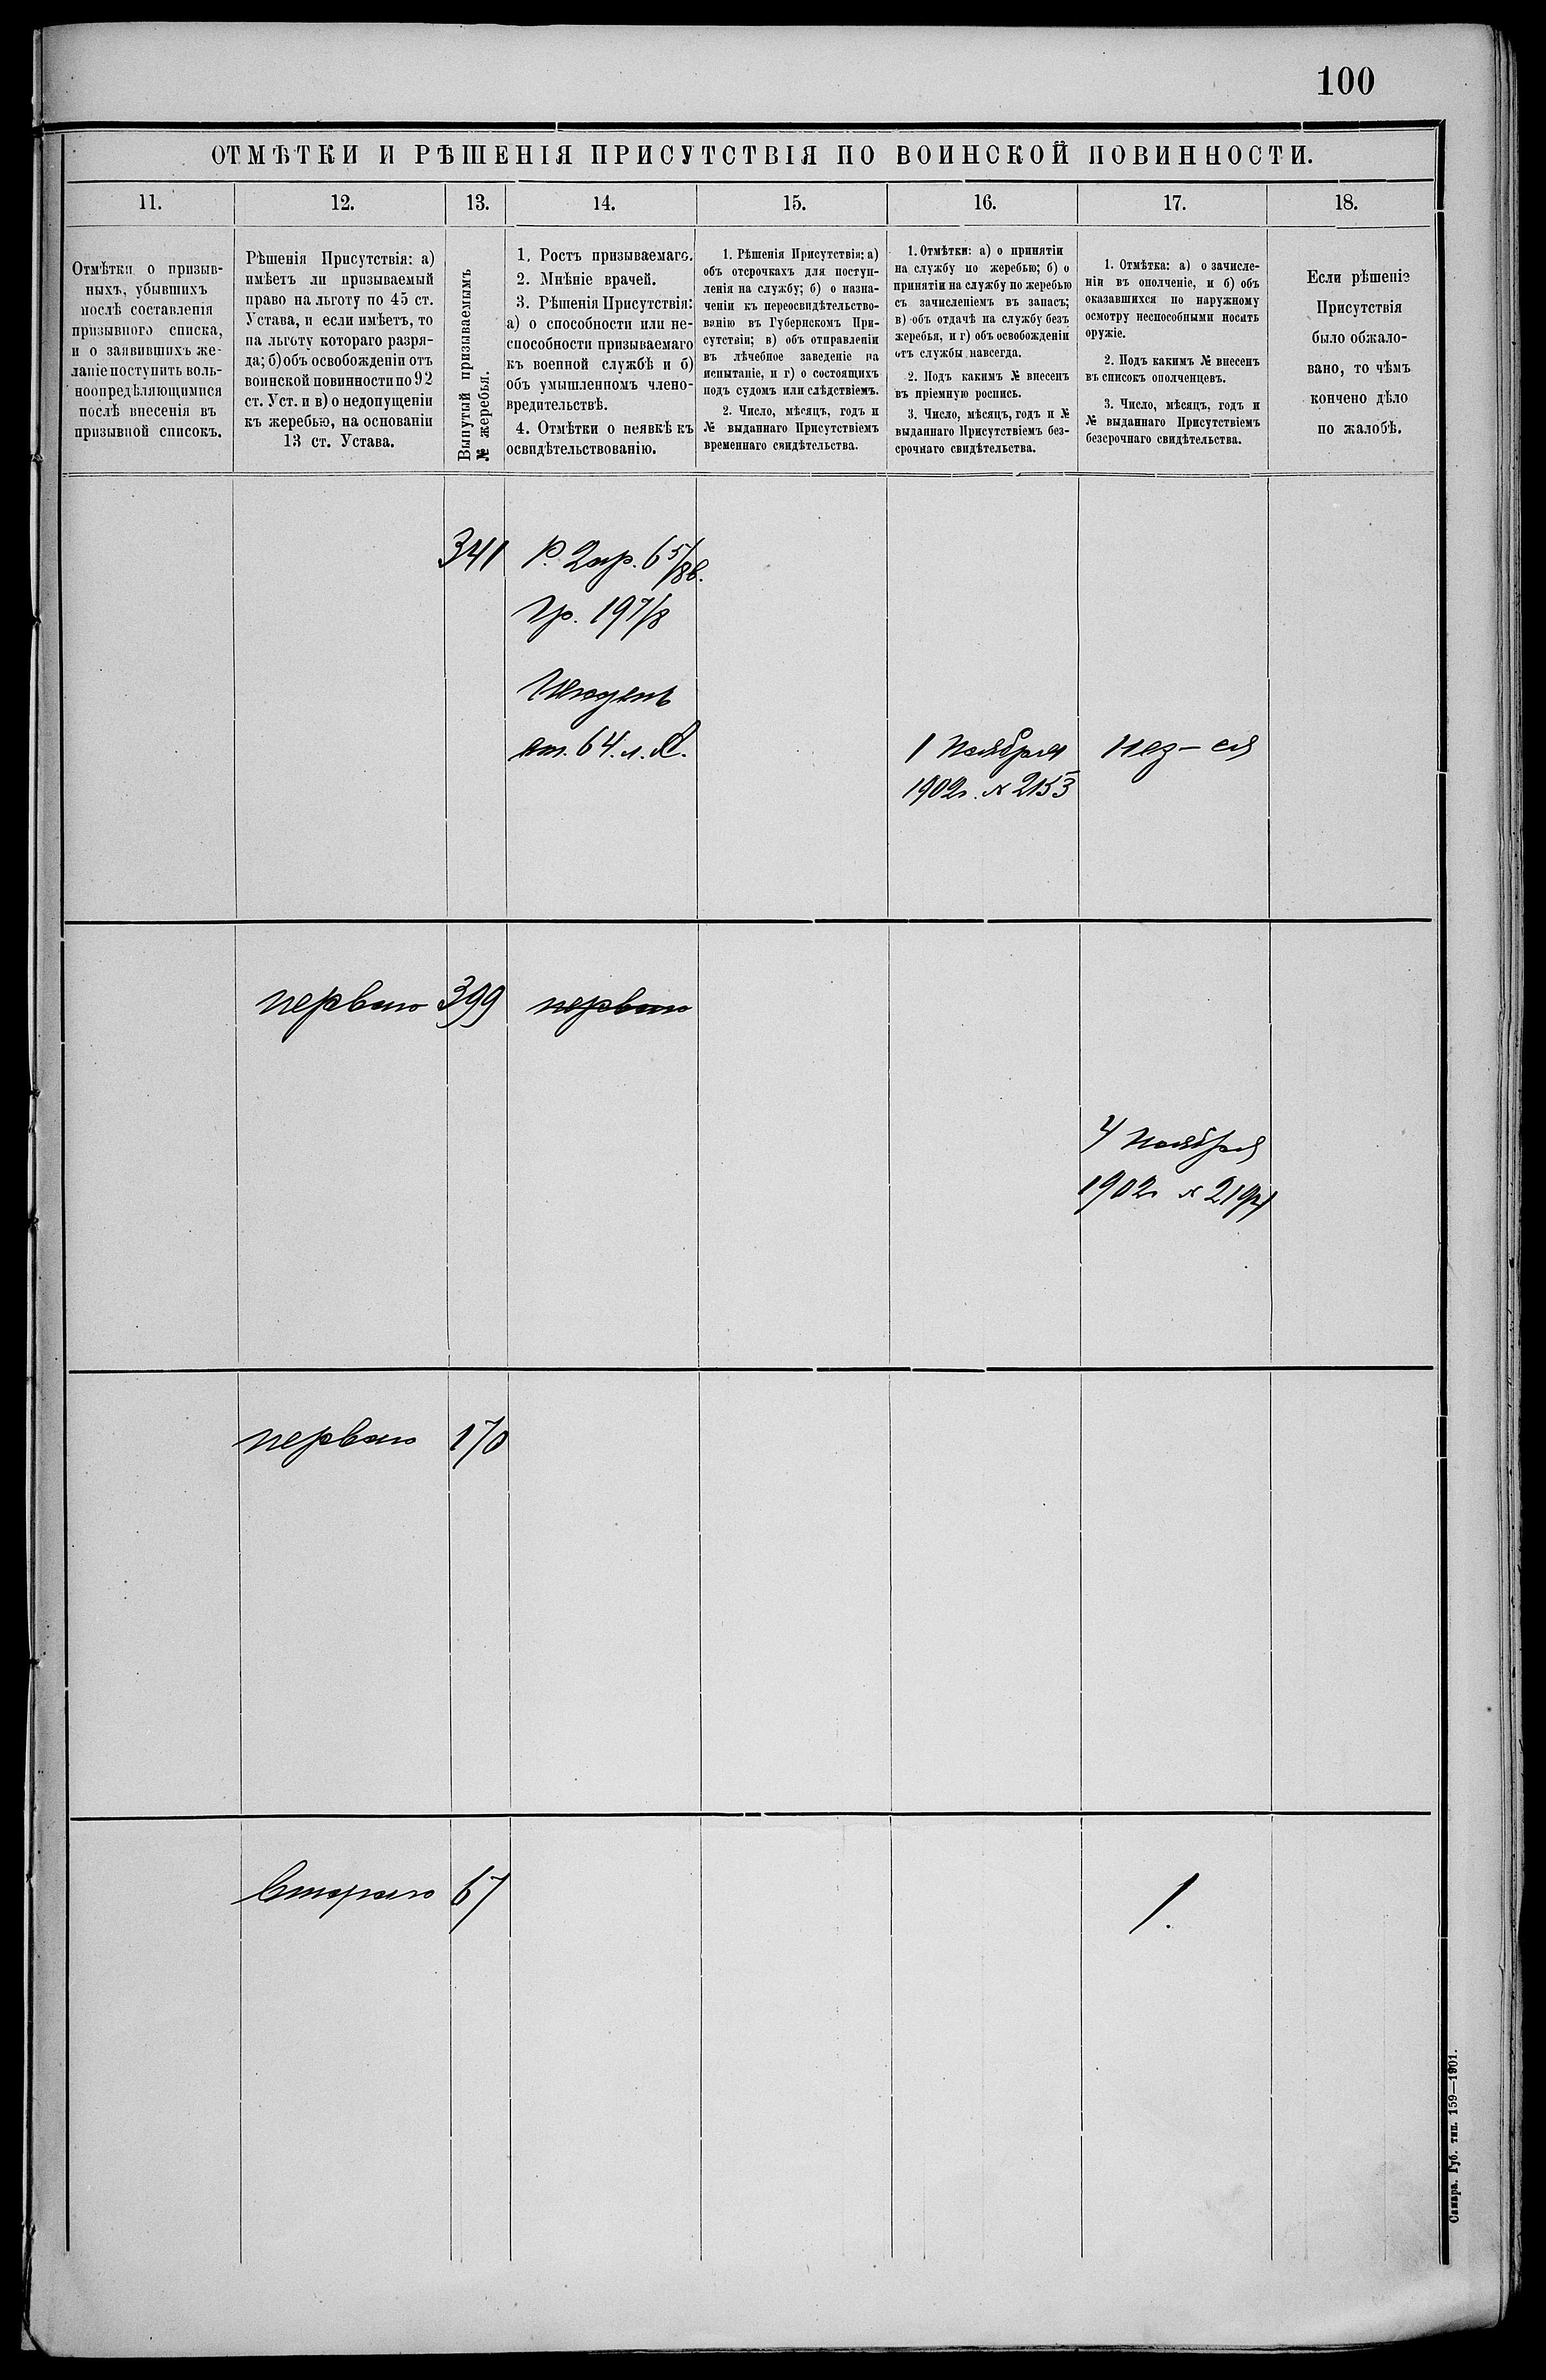 100
ОТМѢТКИ И РѢШЕНІЯ ПРИСУТСТВІЯ ПО ВОИНСКОЙ ПОВИННОСТИ.
11.
12.
13.
14.
15.
16.
17.
18.
Отмѣтки о призыв-
ныхъ, убывшихъ
послѣ составленія
призывного списка,
и о заявившихъ же-
ланіе поступить воль-
ноопредѣляющимися
послѣ внесенія въ
призывной списокъ.
Рѣшенія Присутствія: а)
имѣетъ ли призываемый
право на льготу по 45 ст.
Устава, и если имѣетъ, то
на льготу котораго разря-
да; б) объ освобожденіи отъ
воинской повинности по 92
ст. Уст. и в) о недопущеніи
къ жеребью, на основаніи
13 ст. Устава.
Вынутый призываемымъ
№ жеребья.
1. Ростъ призываемаго.
2. Мнѣніе врачей.
3. Рѣшенія Присутствія:
а) о способности или не-
способности призываемаго
къ военной службѣ и б)
объ умышленномъ члено-
вредительствѣ.
4. Отмѣтки о неявкѣ къ
освидѣтельствованію.
1. Рѣшенія Присутствія: а)
объ отсрочкахъ для поступ-
ленія на службу; б) о назна-
ченіи къ переосвидѣтельство-
ванію въ Губернскомъ При-
сутствіи; в) объ отправленіи
въ лѣчебное заведеніе на
испытаніе, и г) о состоящихъ
подъ судомъ или слѣдствіемъ.
2. Число, мѣсяцъ, годъ и
№ выданнаго Присутствіемъ
временнаго свидѣтельства.
1. Отмѣтки: а) о принятіи
на службу по жеребью; б) о
принятіи на службу по жеребью
съ зачисленіемъ въ запасъ;
в) объ отдачѣ на службу безъ
жеребья, и г) объ освобожденіи
отъ службы навсегда.
2. Подъ какимъ № внесенъ
въ пріемную роспись.
3. Число, мѣсяцъ, годъ и №
выданнаго Присутствіемъ без-
срочнаго свидѣтельства.
1. Отмѣтка: а) о зачисле-
ніи въ ополченіе, и б) объ
оказавшихся по наружному
осмотру неспособными носить
оружіе.
2. Подъ какимъ № внесенъ
въ списокъ ополченцевъ.
3. Число, мѣсяцъ, годъ и
№ выданнаго Присутствіемъ
безсрочнаго свидѣтельства.
Если рѣшеніе
Присутствія
было обжало-
вано, то чѣмъ
кончено дѣло
по жалобѣ.
341
Р. 2 ар. 6 5/8 в.
Гр. 19 7/8
1 Ноября
1902г. № 2153
перваго
399
перваго
4 Ноября
1902г № 2194
перваго
170
Втораго
67
1.
Самара. Губ. тип. 159—1901.